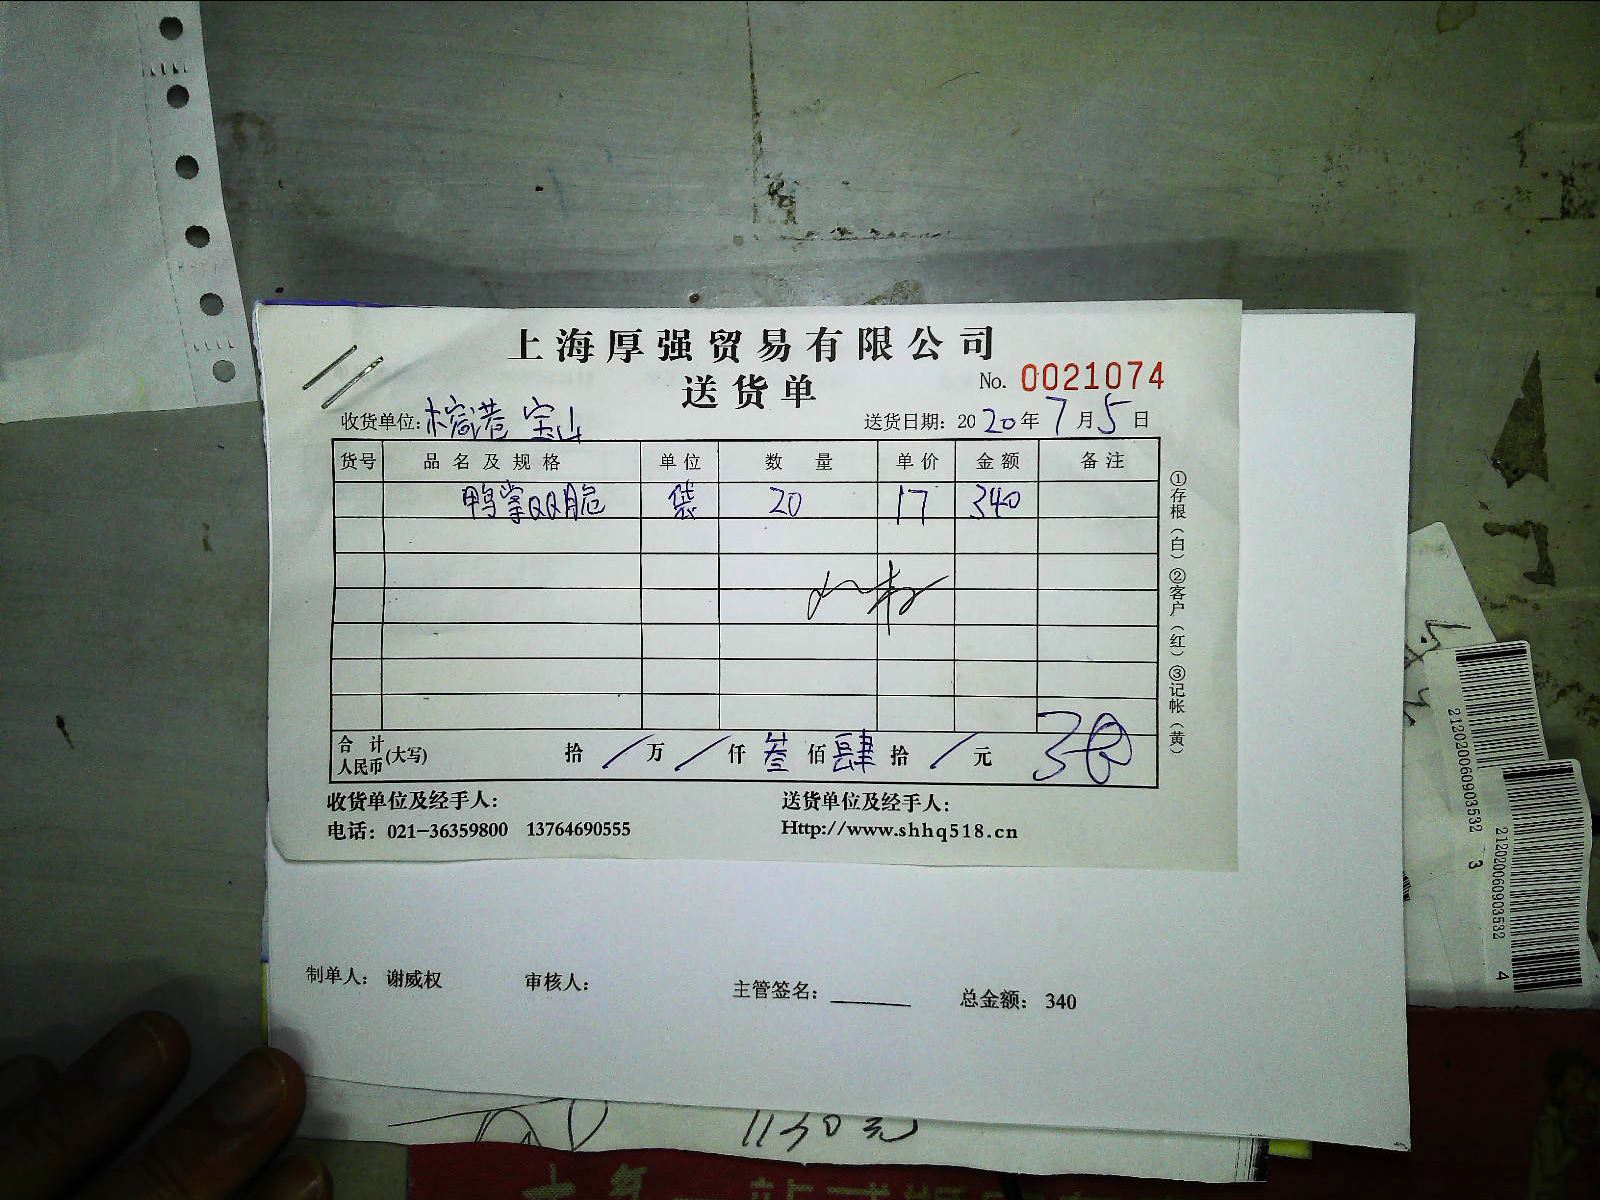 上海厚强贸易有限公司
送货单
No. 0021074
收货单位: 榕港 宝山 送货日期: 2020年7月5日
货号 品名及规格 单位 数量 单价 金额 备注
鸭掌QQ脆 袋 20 17 340
合计人民币(大写) 拾 / 万 / 仟 叁 佰 肆 拾 / 元
收货单位及经手人: 送货单位及经手人:
电话: 021-36359800 13764690555 Http://www.shhq518.cn
①存根(白)②客户(红)③记帐(黄)
制单人: 谢威权 审核人: 主管签名: 总金额: 340
1130元
212020060903532 3
212020060903532 4